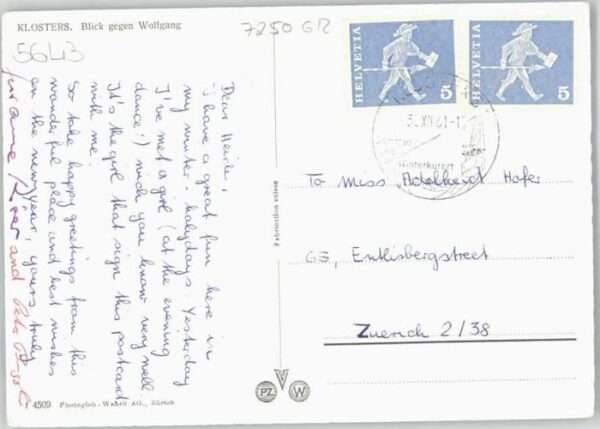 KLOSTERS. Blick gegen Wolfgang
5643
7250 GR
HELVETIA 5
HELVETIA 5
Winterkurort
Dear Heidi,
i have a great fun here in
my winter - holidays. Yesterday
I've met a girl (at the evening
dance!) wich you know very well.
It's the girl that sign this postcard
with me.
So take happy greetings from this
wonderful place and best wishes
in the newyear, yours truly
and
Fabrication suisse
To Miss Adelheid Hofer
63, Entlisbergstreet
Zuerich 2/38
4509 Photoglob-Wehrli AG., Zürich
PZ W